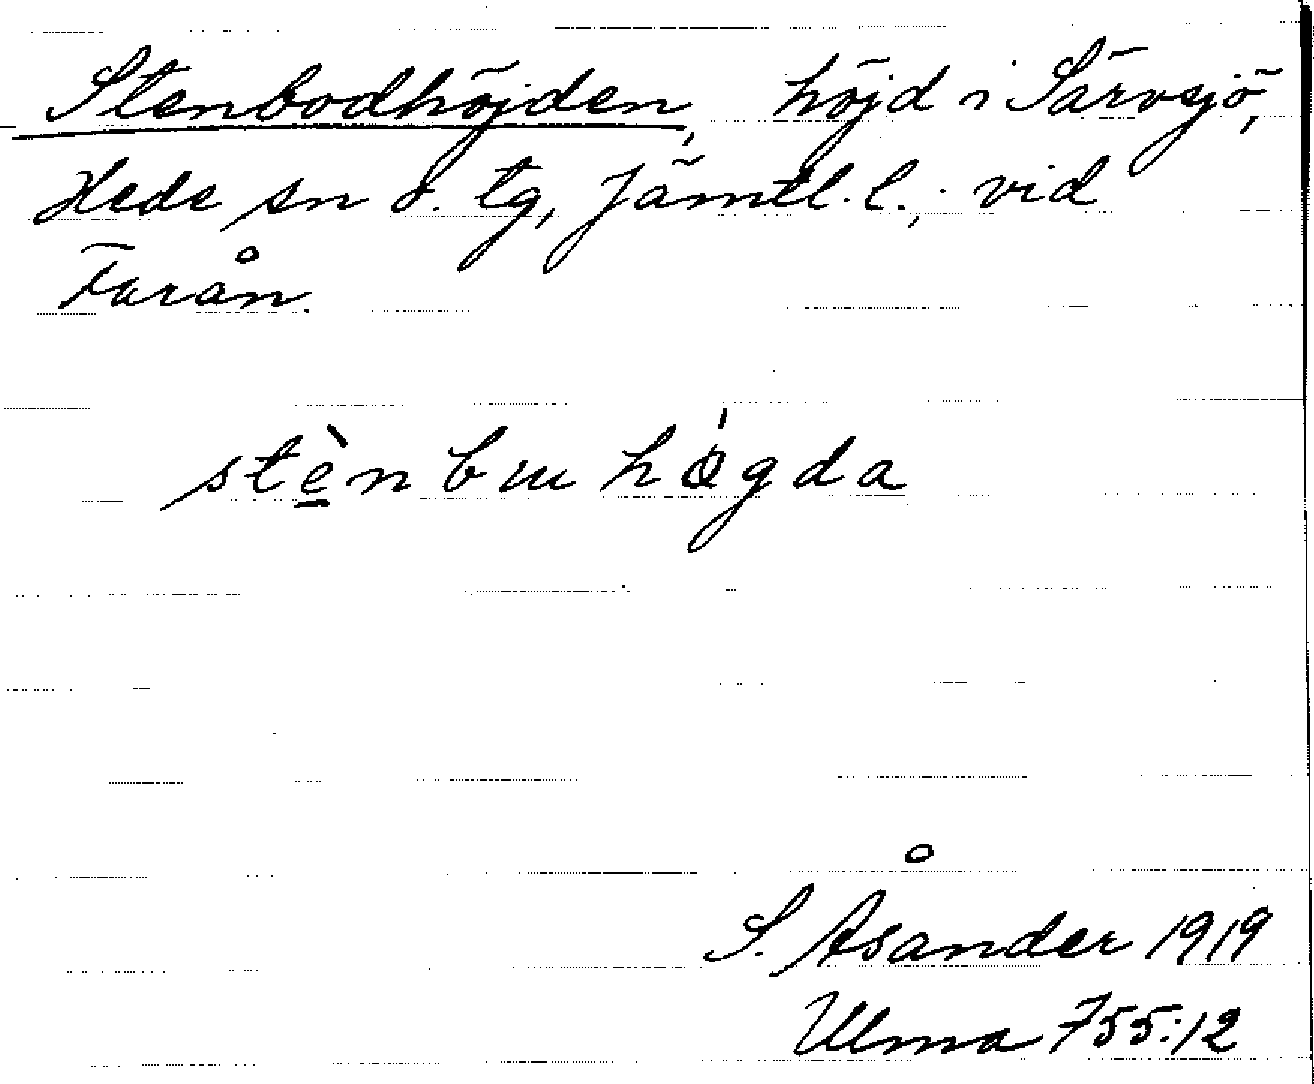 Stenbodhöjden, höjd i Särvsjö,
Hede sn o. tg, Jämtl. l.; vid
Farån.
stènbɯhǿgda
S. Åsander 1919
Ulma 755:12